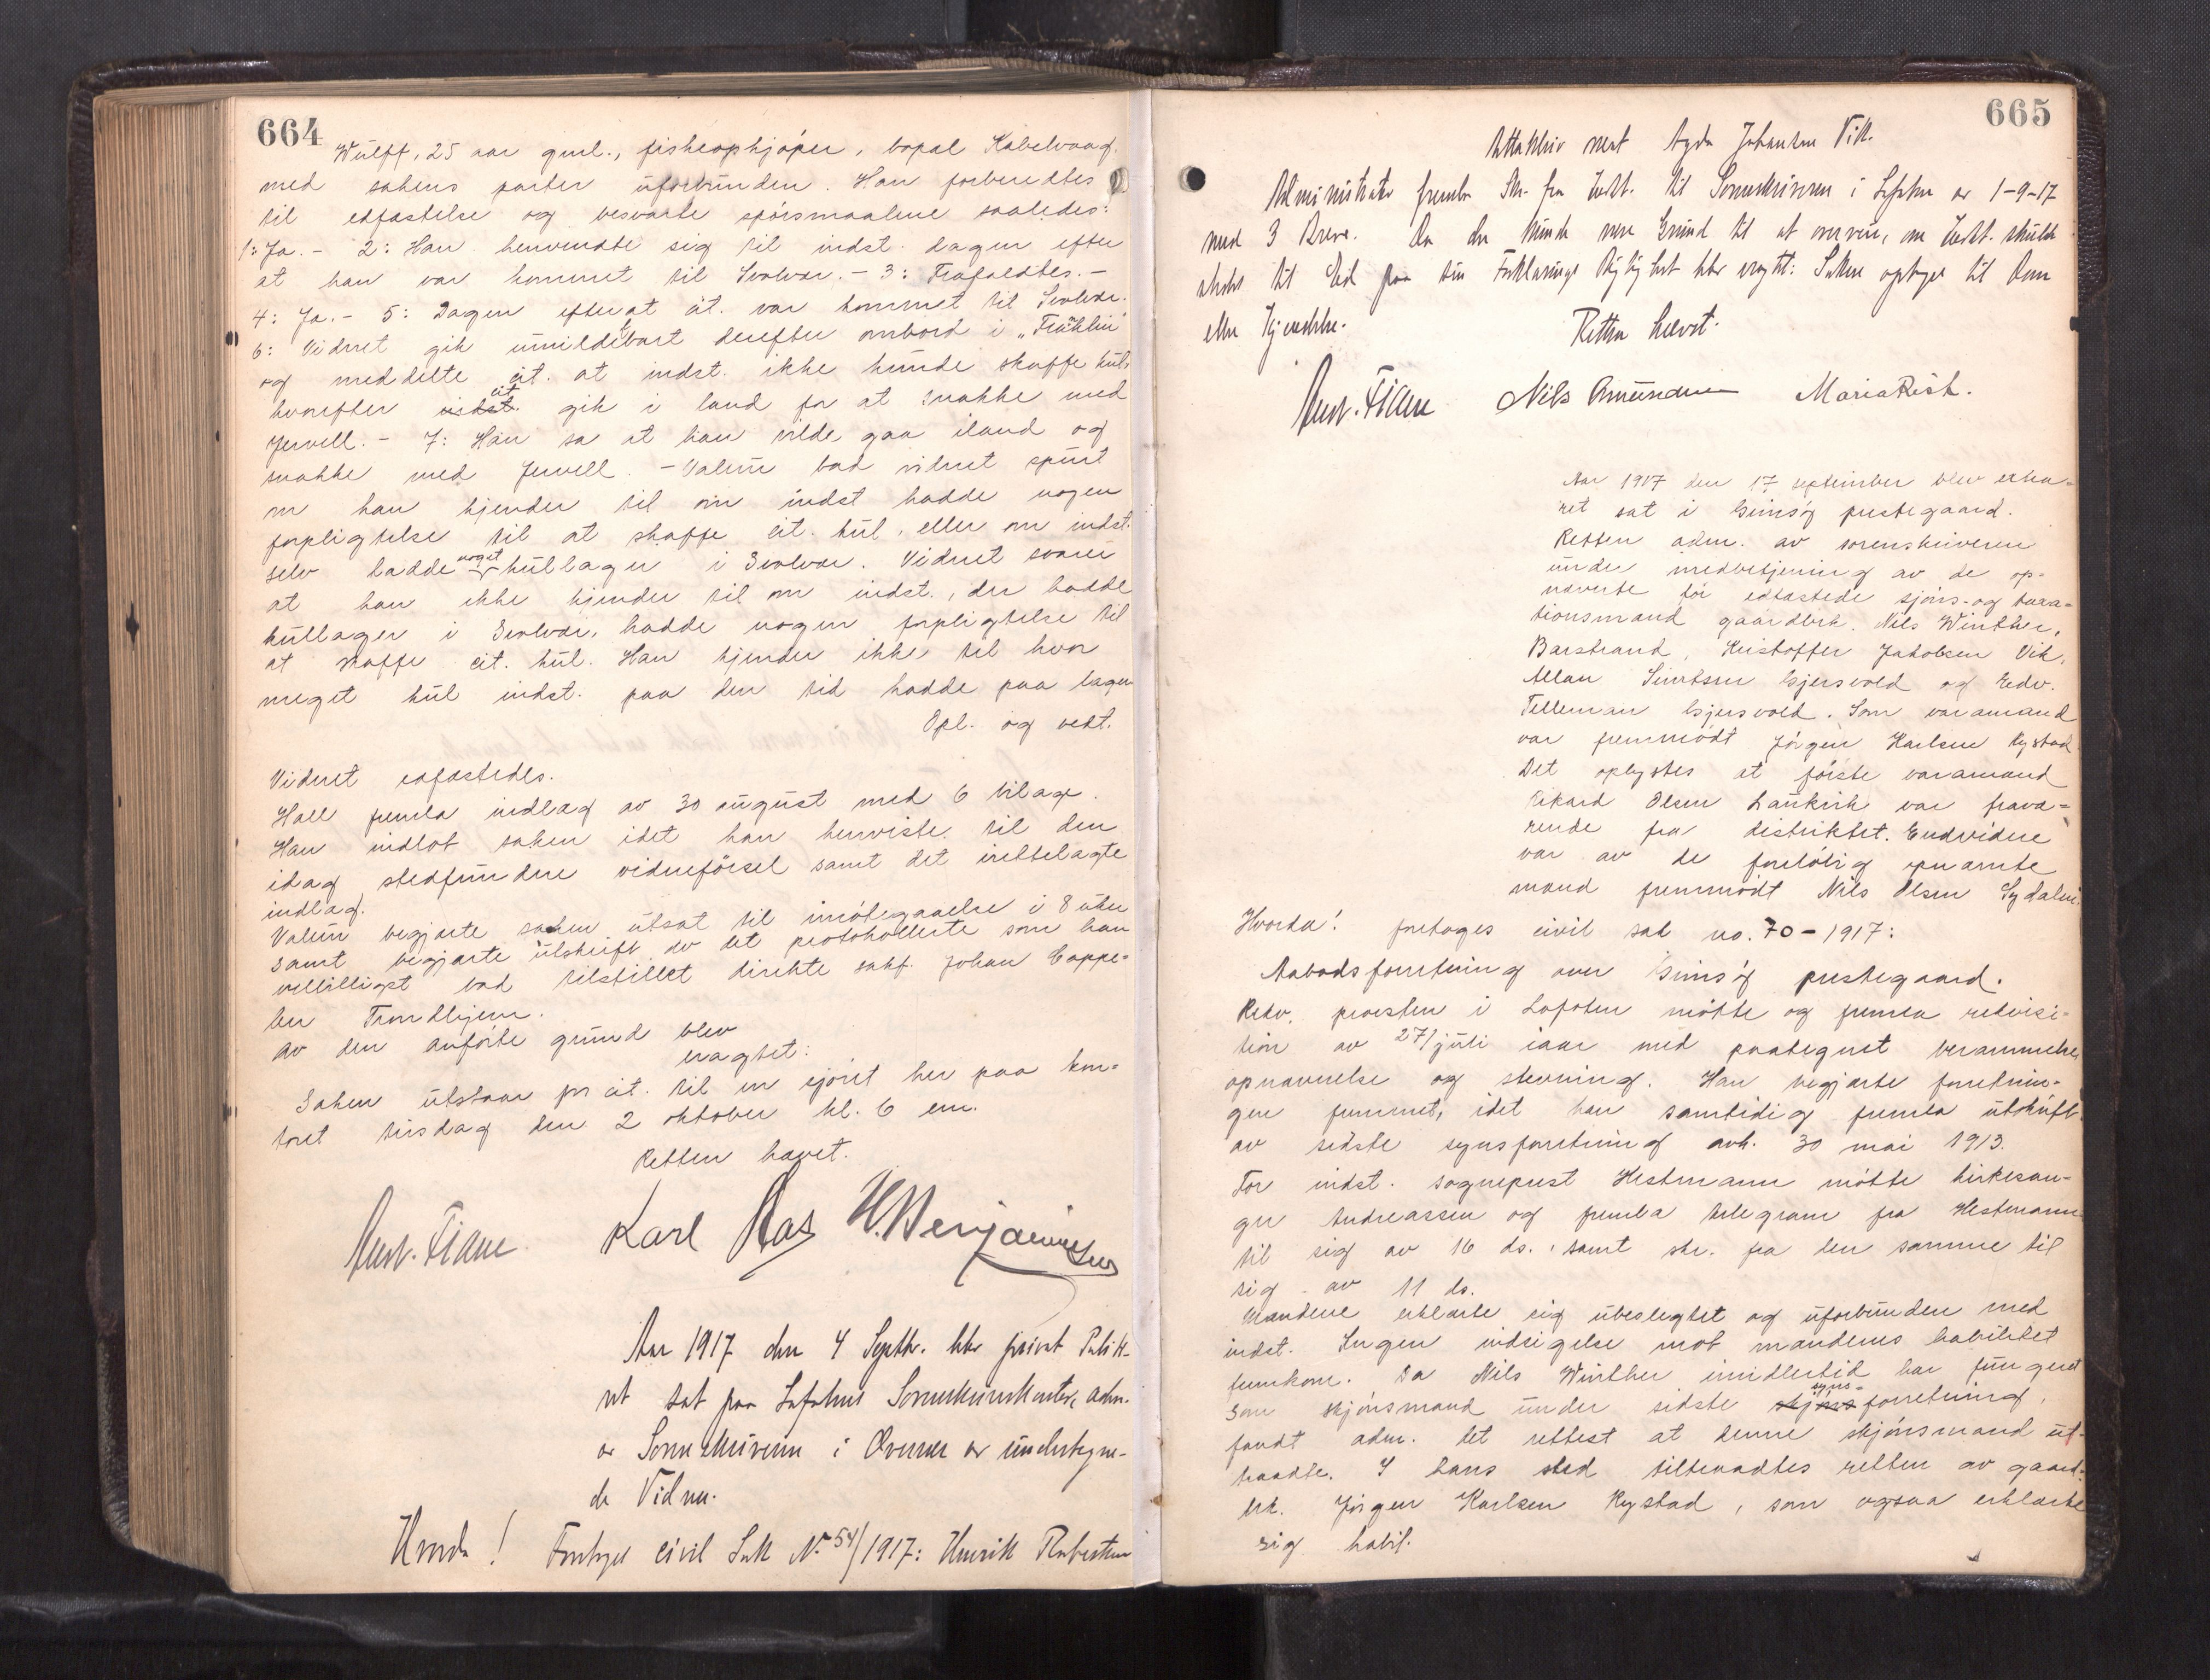 664
Wulff, 25 aar gml., fiskeophjøper, bopæl Kabelvaag.
med sakens parter uforbunden. Han forberedtes
til edfæstelse og besvarte spørsmaalene saaledes:
1: Ja. - 2: Han henvendte sig til indst. dagen efter
at han var kommet til Svolvær. - 3: Frafaldtes. -
4: Ja. - 5: Dagen efterat cit. var kommet til Svolvær.
6: Vidnet gik umiddelbart derefter ombord i
og meddelte cit. at indst. ikke kunde skaffe kul,
hvorefter indst. cit. gik i land for at snakke med
Jervell. - 7: Han sa at han vilde gaa iland og
snakke med Jervell. - Valeur bad vidnet spurt
om han kjender til om indst hadde nogen
forpligtelse til at skaffe cit. kul, eller om indst.
selv hadde noget kullager i Svolvær. Vidnet svarer
at han ikke kjender til om indst., der hadde
kullager i Svolvær, hadde nogen forpligtelse til
at skaffe cit. kul. Han kjender ikke til hvor
meget kul indst. paa den tid hadde paa lager
Opl. og vedt.
Vidnet edfæstedes.
Hall fremla indlæg av 30 august med 6 bilag.
Han indlot saken idet han henviste til den
idag stedfundne vidneførsel samt det irettelagte
indlæg.
Valeur begjærte saken utsat til imøtegaaelse i 8 uker
samt begjærte utskrift av det protokollerte som han
velvilligst bad tilstillet direkte sakf. Johan Cappe=
len Trondhjem.
Av den anførte grund blev
eragtet:
Saken utstaar pr cit. til en sjøret her paa kon=
toret tirsdag den 2 oktober kl. 6 em.
Retten hævet.
Karl Aas
Aar 1917 den 4 Septbr. blev privat Politi-
ret sat paa Lofotens Sorenskriverkontor, adm.
av Sorenskriveren i Overvær av undertegne-
de Vidner.
Hvorda! Foretoges civil Sak No 54/1917: Henrik Robertsen
665
Attakstiv mot Agda Johansen Vik.
Administrator fremla Skr. fra Indst. til Sorenskriveren i Lofoten av 1-9-17
med 3 Breve. Da der kunde være Grund til at overveie, om Indst. skulde
stedes til Ed paa sin Forklarings Rigtighed blev eragtet: Saken optages til Dom
eller Kjendelse.
Retten hævet.
Nils Amundsen Maria Risk.
Aar 1917 den 17 september blev extra=
ret sat i Gimsøy prestegaard.
Retten adm. av sorenskriveren
under medbetjening av de op=
nævnte før edfæstede skjøns- og taxa=
tionsmænd gaardbrk. Nils Winther,
Barstrand, Kristoffer Jakobsen Vik,
Allan Simtsen Gjersvold og Edv.
Telleman Gjersvold. Som varamand
var fremmødt Jørgen Karlsen Rystad
Det oplystes at første varamand
Rikard Olsen Laukvik var fravæ=
rende fra distriktet. Endvidere
var av de foreløbig opnævnte
mænd fremmødt Nils Olsen Sydalen.
Hvorda! foretoges civil sak no. 70-1917:
Aabodsforretning over Gimsøy prestegaard.
Rekv. provsten i Lofoten møtte og fremla rekvisi=
tion av 27/juli iaar med paategnet berammelse,
opnævnelse og stevning. Han begjærte forretnin=
gen fremmet, idet han samtidig fremla utskrift
av sidste synsforretning avh. 30 mai 1913.
For indst. sogneprest Hestmann møtte kirkesan=
ger Andreassen og fremla telegram fra Hestmann
til sig av 16 ds., samt skr. fra den samme til
sig av 11 ds.
Mændene erklærte sig ubeslegtet og uforbunden med
indst. Ingen indsigelse mot mændenes habilitet
fremkom. Da Nils Winther imidlertid har fungeret
som skjønsmand under sidste skjøns syns=forretning,
fandt adm. det rettest at denne skjønsmand ut-
traadte. I hans sted tiltraadtes retten av gaard=
brk. Jørgen Karlsen Rystad, som ogsaa erklærte
sig habil.